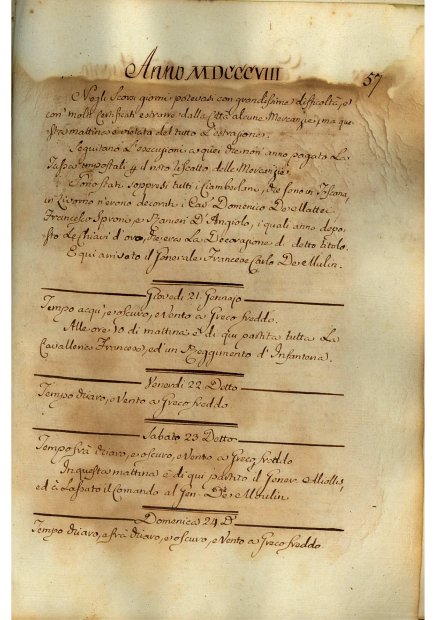 Anno MDCCCVIII
57
Negli scorsi giorni potevasi con grandissime difficoltà, e
con molti Certificati estrarre dalla Città alcune Mercanzie, ma que
sta mattina è vietata del tutto l'estrazione.
Seguitano l'esecuzioni a quei che non anno pagata La
Tassa impostali il riscatto delle Mercanzie.
Sono stati soppressi tutti i Ciamberlani, che sono in Toscana,
in Livorno n'erono decorati i Cav. Domenico De Mattei
Francesco Sproni, e Ranieri D'Angiolo, i quali anno depo
sto Le Chiavi d'oro, La Decorazione d. detto titolo.
E qui arrivato il Generale Francese Carlo De Mulin.
Giovedì 21 Gennajo
Tempo acqu, e oscuro, e Vento a Greco freddo.
Alle ore 10 di mattina è di qui partita tutta La
Cavalleria Francese, ed un Reggimento d'Infanteria.
Venerdì 22 Detto
Tempo chiaro, e Vento a Greco freddo
Sabato 23 Detto
Tempo frà chiaro, e oscuro, e Vento a Greco freddo
In questa mattina è di qui partito il Gener. Miollis,
ed à Lassato il Comando al Gen. De Moulin
Domenica 24 D.
Tempo chiaro, e frà chiaro, e oscuro, e Vento a Greco freddo.